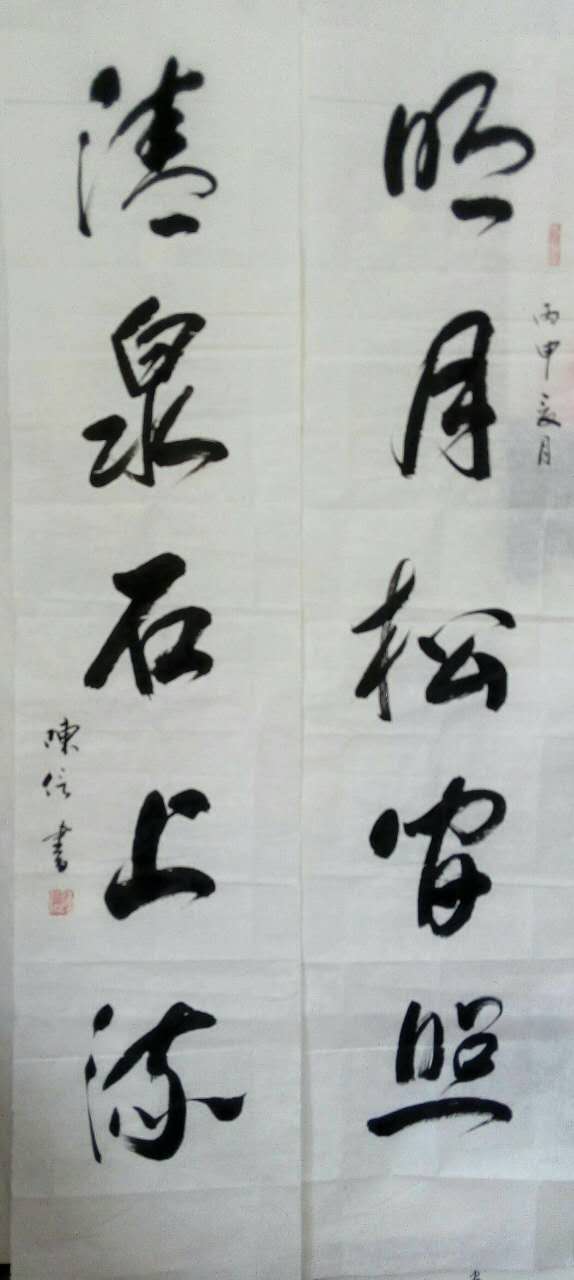 丙申亥月
明月松间照
清泉石上流
陳信書